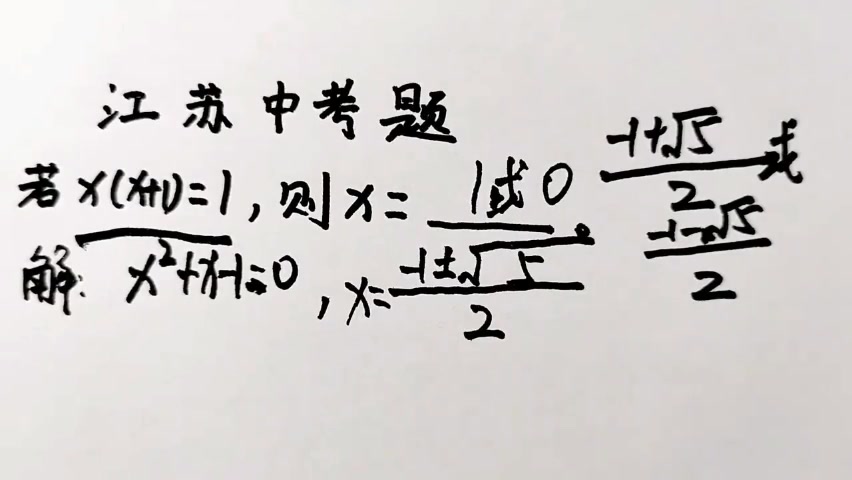 江苏中考题
若 x(x+1)=1, 则 x= 1或0。 (-1+√5)/2 或 (-1-√5)/2
解: x²+x-1=0, x=(-1±√5)/2